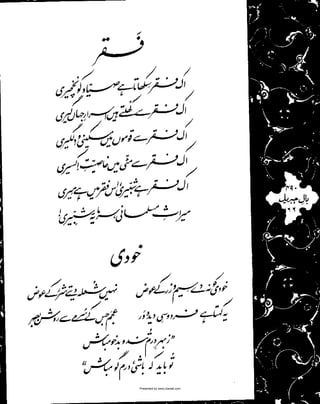 فقر
اک فقر سکھاتا ہے صیاد کو نخچیری
اک فقر سے کھلتے ہیں اسرارِ جہاں گیری
اک فقر سے قوموں میں مسکینی و دلگیری
اک فقر سے مٹی میں خاصیتِ اکسیری
اک فقر ہے شبیری، اس فقر میں ہے میری
میراثِ مسلمانی، سرمایۂ شبیری!
۴۹۰
بالِ جبریل
خودی
خودی کو نہ دے سیم و زر کے عوض نہیں شعلہ دیتے شرر کے عوض
یہ کہتا ہے فردوسیِ دیدہ ور عجم جس کے سرمے سے روشن بصر
"ز بہرِ درم تند و بدخو مباش
تو باید کہ باشی، درم گو مباش"
Presented by www.ziaraat.com